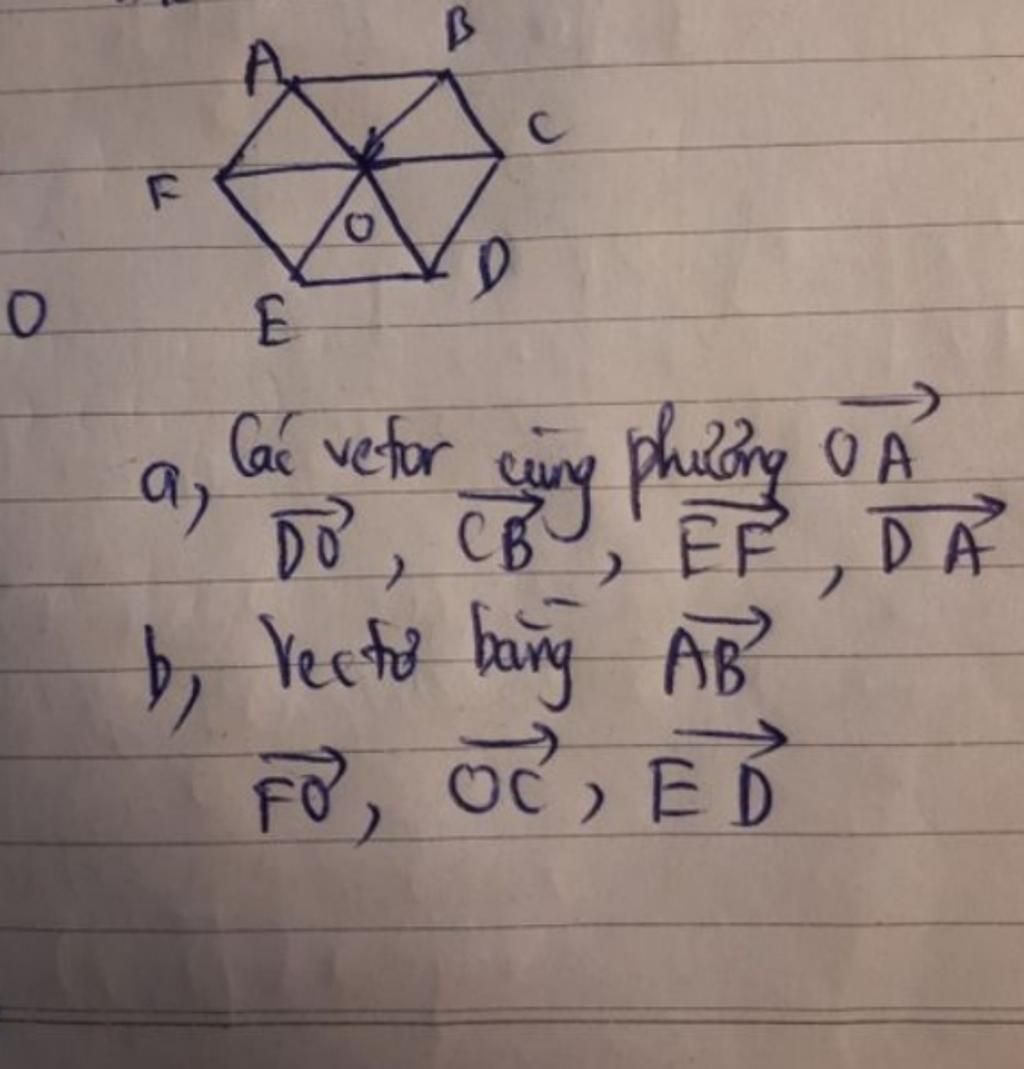 A B
F C
O
E D
O
a, Các vetor cùng phương \overrightarrow{OA}
\overrightarrow{DO}, \overrightarrow{CB}, \overrightarrow{EF}, \overrightarrow{DA}
b, Vectơ bằng \overrightarrow{AB}
\overrightarrow{FO}, \overrightarrow{OC}, \overrightarrow{ED}